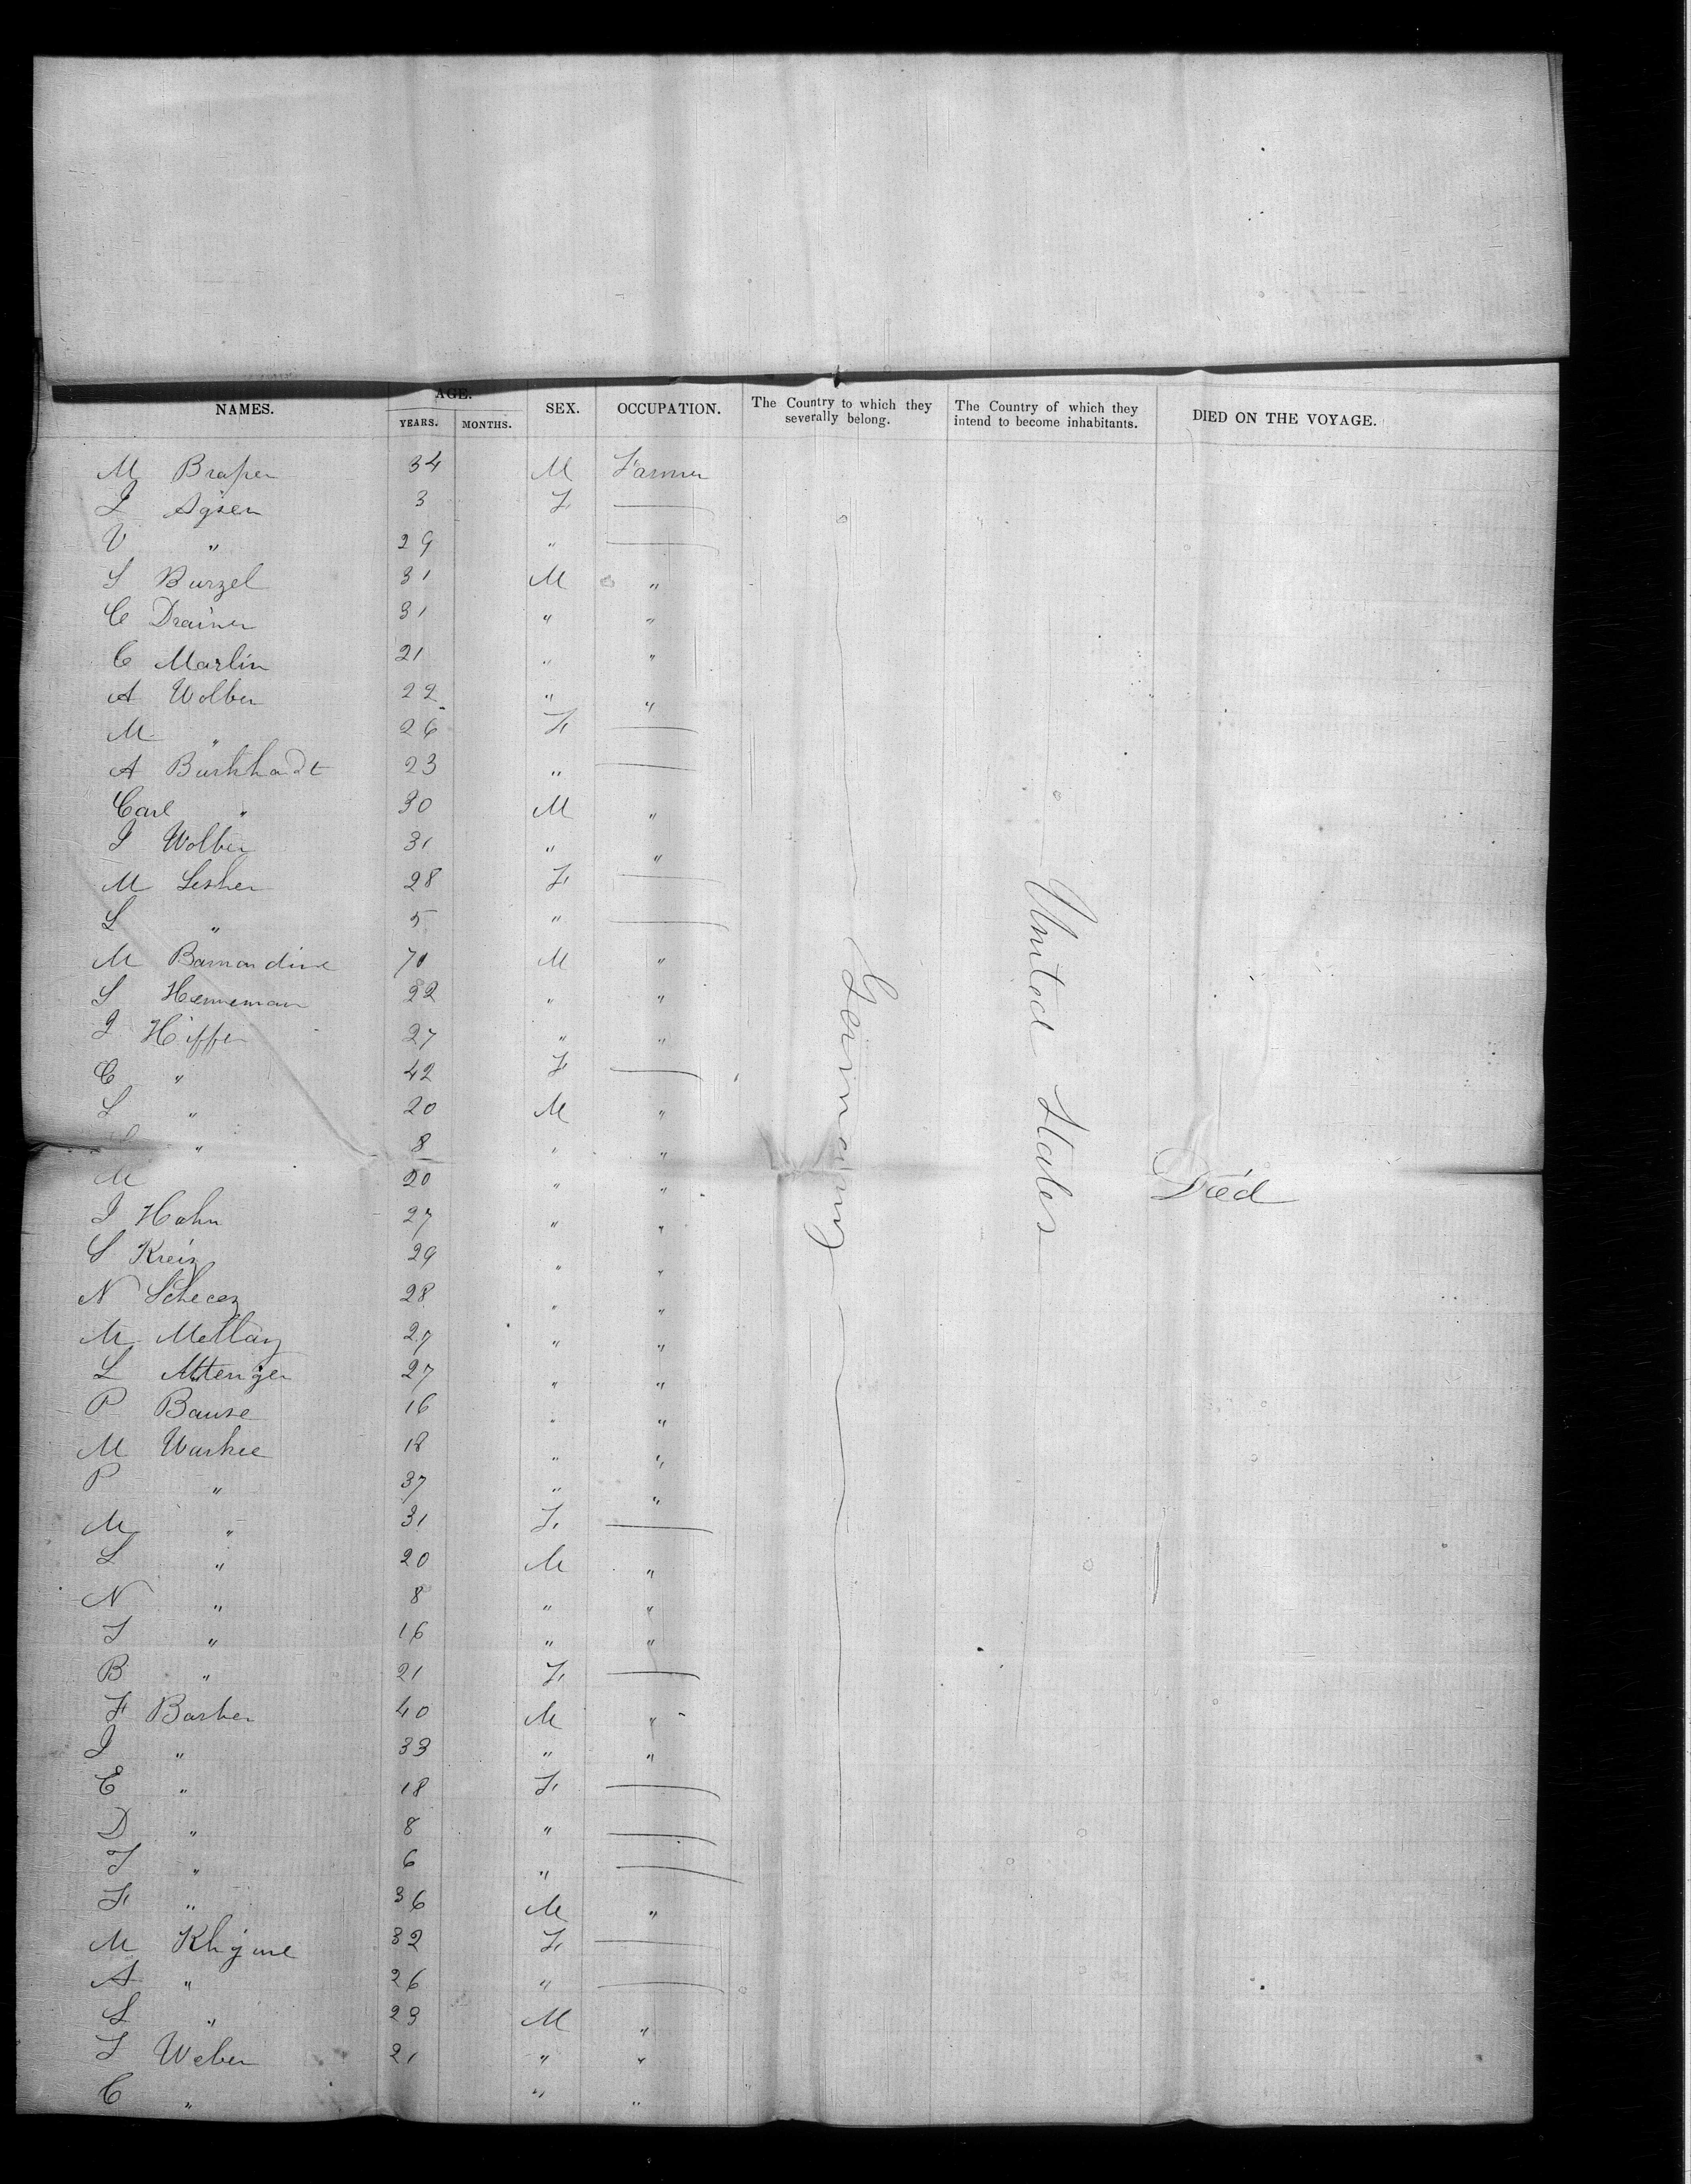 NAMES. AGE. SEX. OCCUPATION. The Country to which they severally belong. The Country of which they intend to become inhabitants. DIED ON THE VOYAGE.
YEARS. MONTHS.
M Braper 34 M Farmer
I Agsen 3 F
V " 29 "
S Burzel 31 M "
C Drainer 31 " "
C Marlin 21 " "
A Wolber 22 " "
M " 26 F
A Burkhardt 23 "
Carl " 30 M "
I Wolber 31 " "
M Lesher 28 F
L " 5 "
M Barnardine 70 M "
S Henneman 22 " "
I Hiffer 27 " "
C " 42 F
L " 20 M "
" 8 " "
M 20 " " Died
I Hahn 27 " "
S Kreiz 29 " "
N 28 " "
M Mettay 27 " "
L 27 " "
P Bause 16 " "
M Warkee 18 " "
P " 37 " "
M " 31 F
L " 20 M "
N " 8 " "
I " 16 " "
B " 21 F
F Barber 40 M "
I " 33 " "
E " 18 F
D " 8 "
I " 6 "
F " 36 M "
M 32 F
A " 26 "
L " 23 M "
I Weber 21 " "
C " " "
Germany
United States